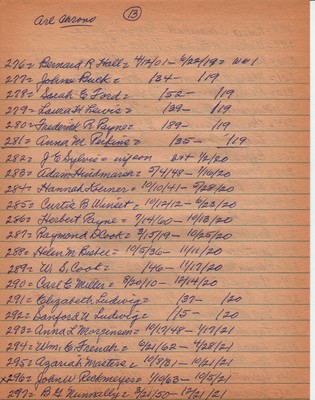 13
Arl Ahrons
276= Bernard R Hall= 4/12/01- 6/22/19= WW1
277= John Buck= /34- /19
278= Sarah E Ford= /52- /19
279= Laura H Lewis= /39- /19
280= Frederick R Payne= /89- /19
281= Anna M. Perkins= /35- /19
282= J E Sylvis= 1/2/20
283= Adam Hindmarch= 5/4/48- 1/10/20
284= Hannah Kerner= 10/10/41- 5/28/20
285= Curtis B Winset= 10/12/12- 9/23/20
286= Herbert Payne= 7/14/60- 10/13/20
287= Raymond D Cook= 3/15/19- 10/25/20
288= Helen M Bisbee= 10/5/36- 11/11/20
289= W S. Cook= /46- 11/17/20
290= Carl E Miller= 8/20/10- 12/14/20
291= Elizabeth Ludwig= /37- /20
292= Sanford U Ludwig= /15- /20
293= Anna L Morgensen= 10/17/48- 1/17/21
294= Wm. E French= 6/21/62- 4/28/21
295= Azariah Masters= 10/8/31- 10/21/21
x296= John W Peckmeyer= 1/10/63- 10/5/21
297= B G Nunnally= 2/21/50- 12/21/21